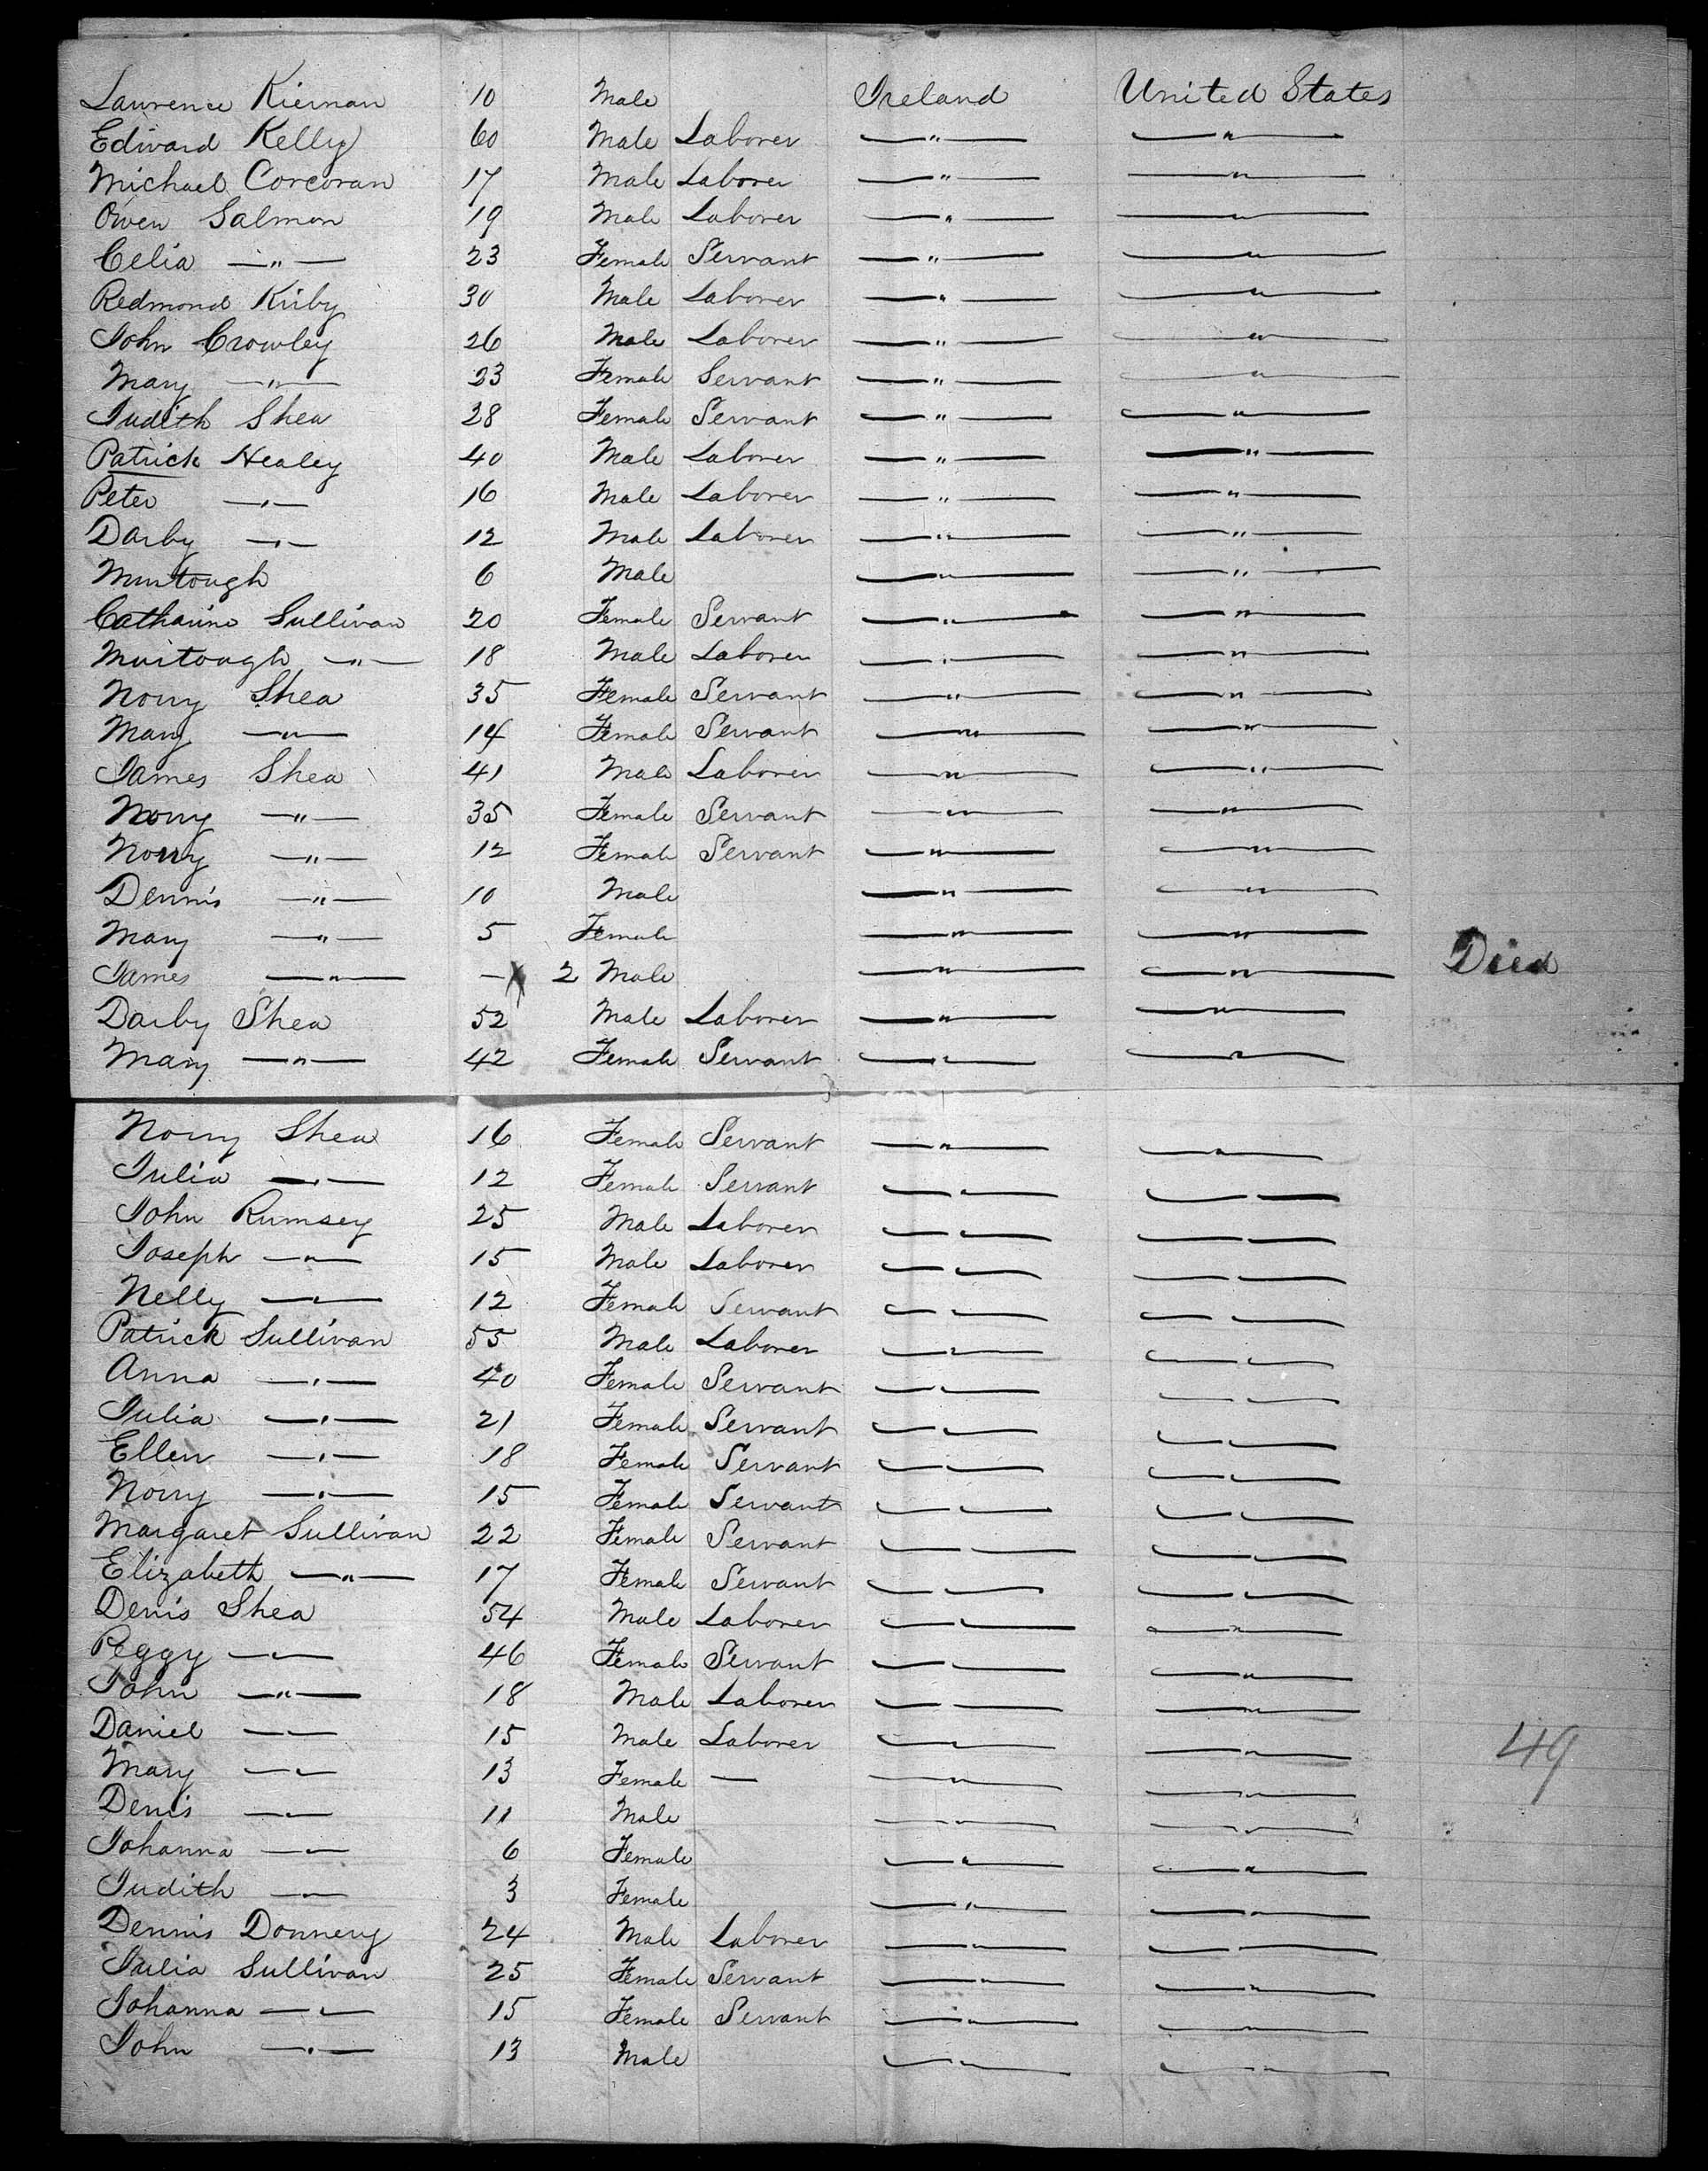 Lawrence Kiernan 10 Male Ireland United States
Edward Kelly 60 Male Laborer — " — — " —
Michael Corcoran 17 Male Laborer — " — — " —
Owen Salmon 19 Male Laborer — " — — " —
Celia — " — 23 Female Servant — " — — " —
Redmond Kirby 30 Male Laborer — " — — " —
John Crowley 26 Male Laborer — " — — " —
Mary — " — 23 Female Servant — " — — " —
Judith Shea 28 Female Servant — " — — " —
Patrick Healey 40 Male Laborer — " — — " —
Peter — " — 16 Male Laborer — " — — " —
Darby — " — 12 Male Laborer — " — — " —
Murtough 6 Male — " — — " —
Catharine Sullivan 20 Female Servant — " — — " —
Murtough — " — 18 Male Laborer — " — — " —
Norry Shea 35 Female Servant — " — — " —
Mary — " — 14 Female Servant — " — — " —
James Shea 41 Male Laborer — " — — " —
Norry — " — 35 Female Servant — " — — " —
Norry — " — 12 Female Servant — " — — " —
Dennis — " — 10 Male — " — — " —
Mary — " — 5 Female — " — — " —
James — " — — 2 Male — " — — " — Died
Darby Shea 52 Male Laborer — " — — " —
Mary — " — 42 Female Servant — " — — " —
Norry Shea 16 Female Servant — " — — " —
Julia — " — 12 Female Servant — " — — " —
John Rumsey 25 Male Laborer — " — — " —
Joseph — " — 15 Male Laborer — " — — " —
Nelly — " — 12 Female Servant — " — — " —
Patrick Sullivan 55 Male Laborer — " — — " —
Anna — " — 40 Female Servant — " — — " —
Julia — " — 21 Female Servant — " — — " —
Ellen — " — 18 Female Servant — " — — " —
Norry — " — 15 Female Servant — " — — " —
Margaret Sullivan 22 Female Servant — " — — " —
Elizabeth — " — 17 Female Servant — " — — " —
Denis Shea 54 Male Laborer — " — — " —
Peggy — " — 46 Female Servant — " — — " —
John — " — 18 Male Laborer — " — — " —
Daniel — " — 15 Male Laborer — " — — " —
Mary — " — 13 Female — — " — — " —
49
Denis — " — 11 Male — " — — " —
Johanna — " — 6 Female — " — — " —
Judith — " — 3 Female — " — — " —
Dennis Donnery 24 Male Laborer — " — — " —
Julia Sullivan 25 Female Servant — " — — " —
Johanna — " — 15 Female Servant — " — — " —
John — " — 13 Male — " — — " —